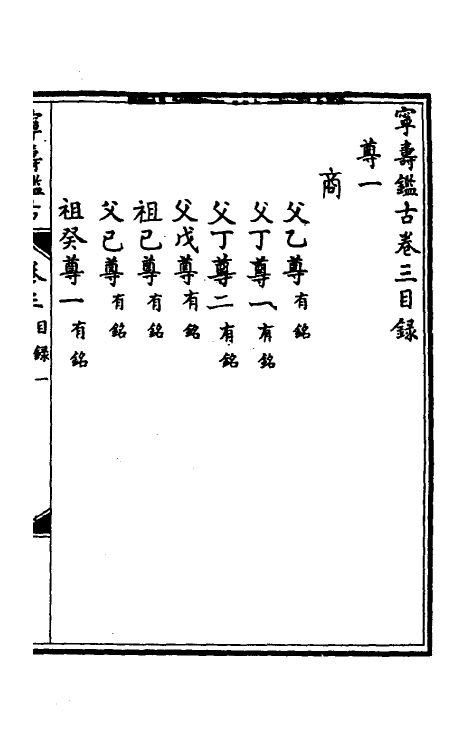 寧壽鑑古卷三目録
尊一
商
父乙尊有銘
父丁尊一有銘
父丁尊二有銘
父戊尊有銘
祖己尊有銘
父己尊有銘
祖癸尊一有銘
寧壽鑑古
卷三目録
一